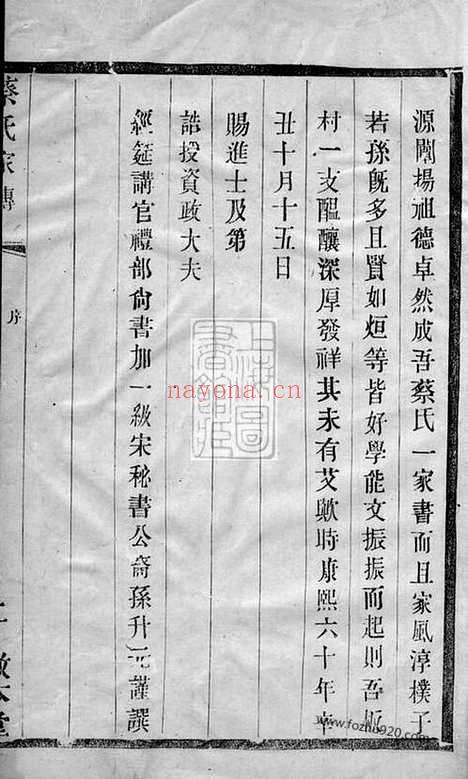 源闡揚祖德卓然成吾蔡氏一家書而且家風淳樸子
若孫既多且賢如烜等皆好學能文振振而起則吾
村一支醖釀深厚發祥其未有艾歟時康熙六十年辛
丑十月十五日
賜進士及第
誥授資政大夫
經筵講官禮部尚書加一級宋秘書公裔孫升元謹譔
蔡氏家傳
序
敬本堂
上海圖書館藏
nayona.cn
www.fozhu920.com